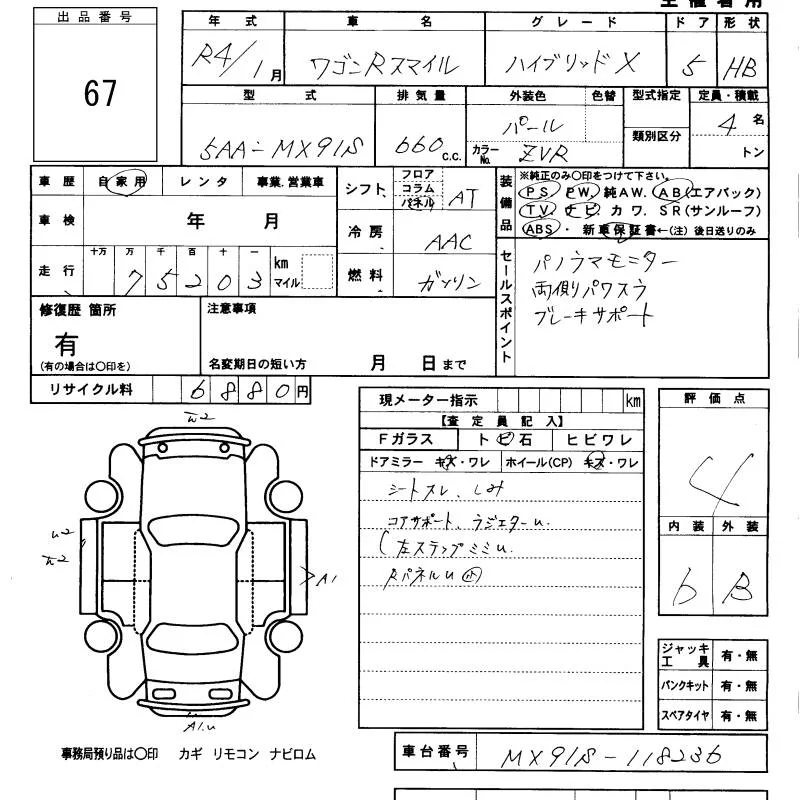 出品番号
67
年式 車名 グレード ドア 形状
R4/1月 ワゴンRスマイル ハイブリッドX 5 HB
型式 排気量 外装色 色替 型式指定 定員・積載
5AA-MX91S 660c.c. パール 類別区分 4名
カラーNo. ZVR トン
車歴 自家用 レンタ 事業.営業車
車検 年 月
十万 万 千 百 十 一
走行 75203 km マイル
シフト フロア コラム パネル AT
冷房 AAC
燃料 ガソリン
装備品
※純正のみ〇印をつけて下さい。
PS. PW. 純AW. AB(エアバック)
TV. ナビ. カワ. SR(サンルーフ)
ABS・ 新車保証書←(注)後日送りのみ
セールスポイント
パノラマモニター
両側パワスラ
ブレーキサポート
修復歴 箇所
有
(有の場合は〇印を)
注意事項
名変期日の短い方 月 日まで
リサイクル料 6880円
現メーター指示 km
【査定員記入】
Fガラス トビ石 ヒビワレ
ドアミラー キズ・ワレ ホイール(CP) キズ・ワレ
シートスレ、しみ
コアサポート、ラジエターu.
(左ステップミミu.
RパネルU 小
評価点
4
内装 外装
6 B
ジャッキ工具 有・無
パンクキット 有・無
スペアタイヤ 有・無
u2
A1
A1.u
事務局預り品は〇印 カギ リモコン ナビロム
車台番号 MX91S-118236